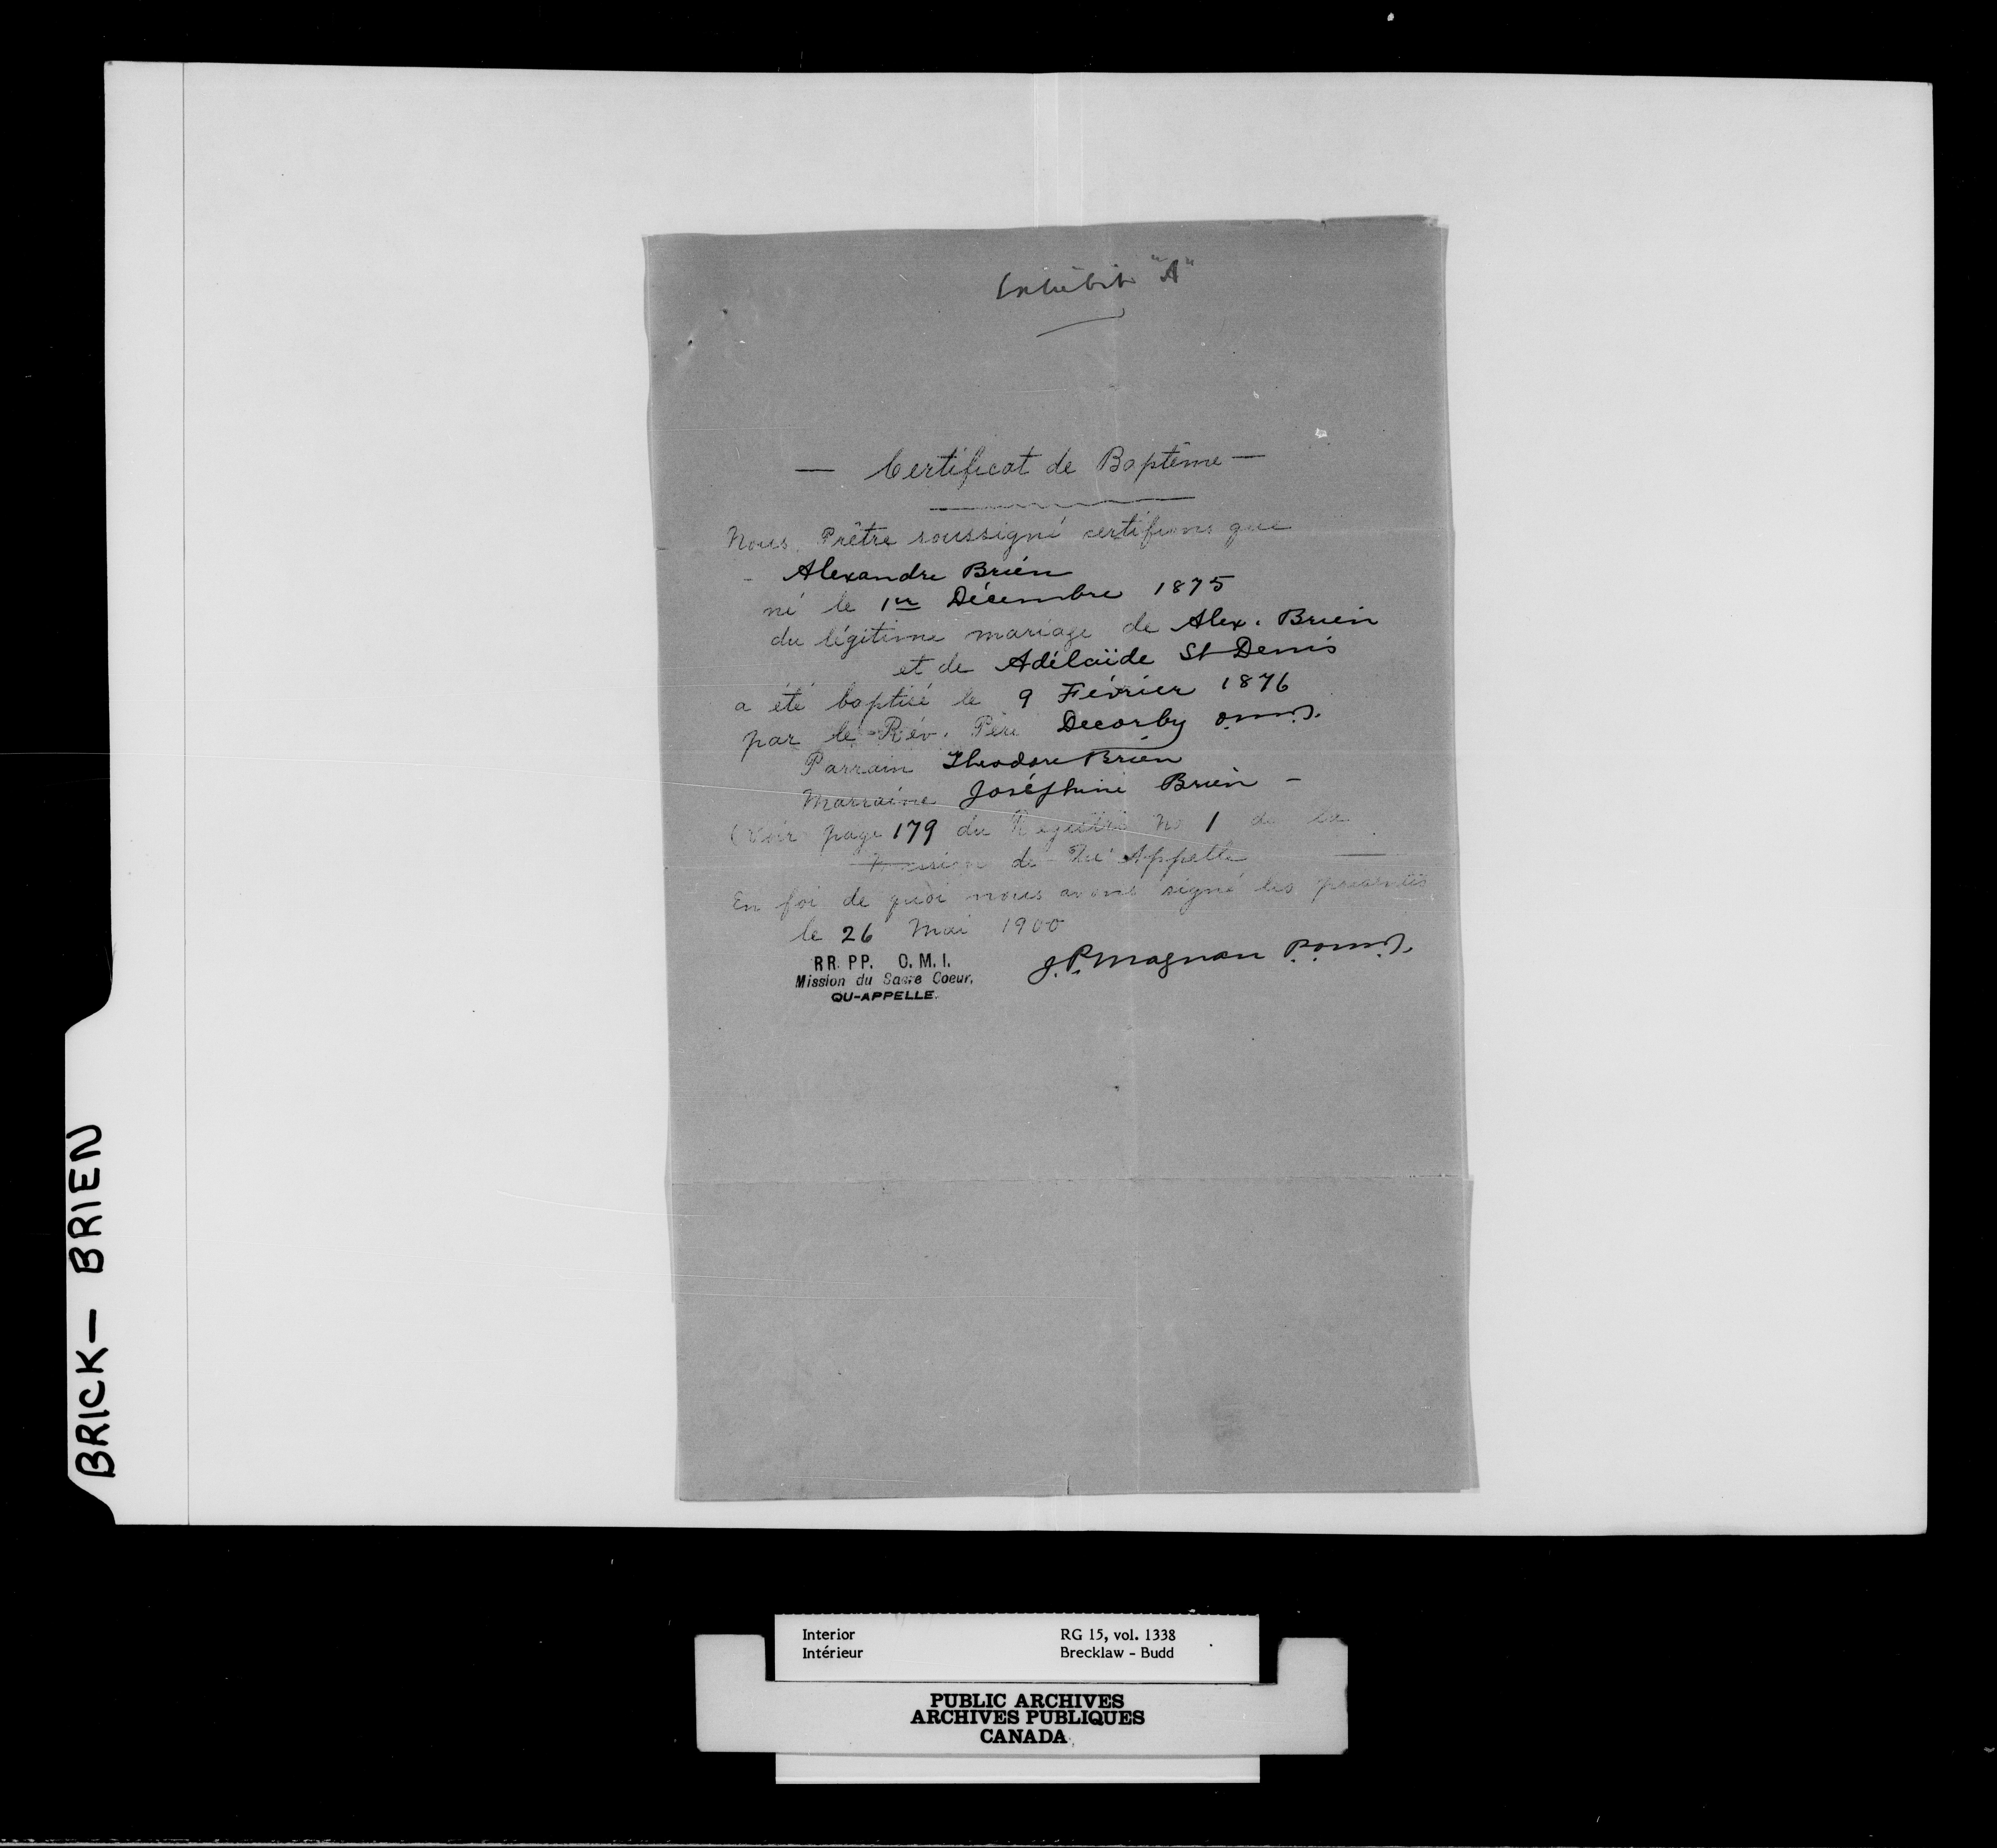 Exhibit "A"
— Certificat de Baptême —
Nous Prêtre soussigné certifions que
- Alexandre Brien
né le 1er Décembre 1875
du légitime mariage de Alex. Brien
et de Adélaïde St Denis
a été baptisé le 9 Février 1876
par le Rév. Père Decorby o.m.i.
Parrain Theodore Brien
Marraine Joséphine Brien -
(Voir page 179 du Registre No 1 de la
Mission de Qu'Appelle
En foi de quoi nous avons signé les présentes
le 26 Mai 1900
RR. PP. O. M. I.
Mission du Sacre Coeur,
QU-APPELLE.
J. P. Magnan p.o.m.i.
BRICK — BRIEN
Interior RG 15, vol. 1338
Intérieur Brecklaw - Budd
PUBLIC ARCHIVES
ARCHIVES PUBLIQUES
CANADA